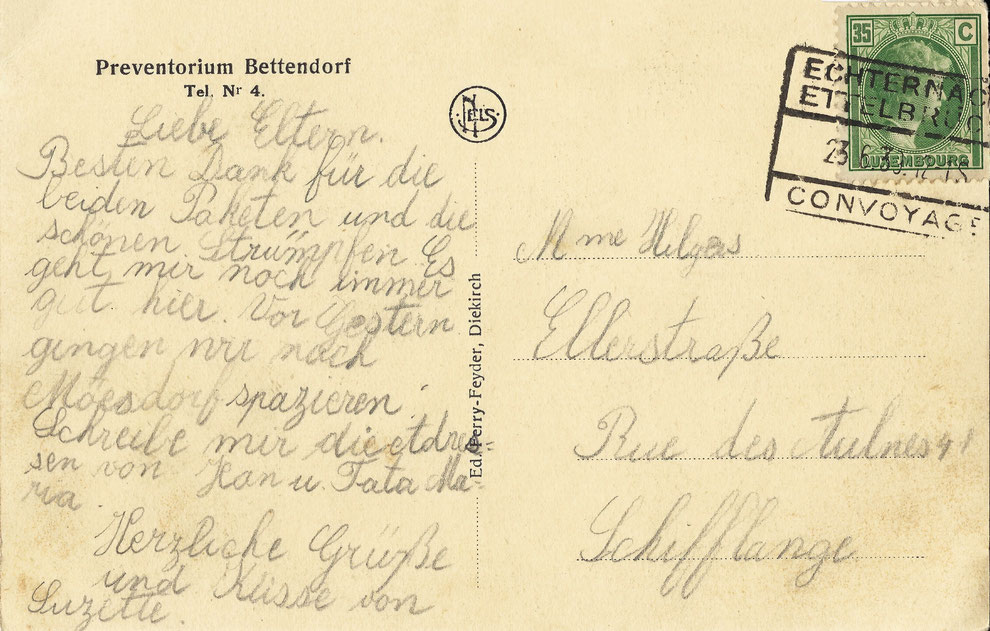 Preventorium Bettendorf
Tel. Nr 4.
Liebe Eltern.
Besten Dank für die
beiden Paketen und die
schönen Strümpfen. Es
geht mir noch immer
gut hier. Vor Gestern
gingen wir nach
Möesdorf spazieren.
Schreibe mir die Adres-
sen von Jean u. Tata Ma-
ria.
Herzliche Grüße
und Küsse von
Suzette.
NELS
Ed. Perry-Feyder, Diekirch
35 C
LUXEMBOURG
ECHTERNAC
ETTELBRUC
23.6.
CONVOYAGE
Mme Hilges
Ellerstraße
Rue des Aulnes 41
Schifflange